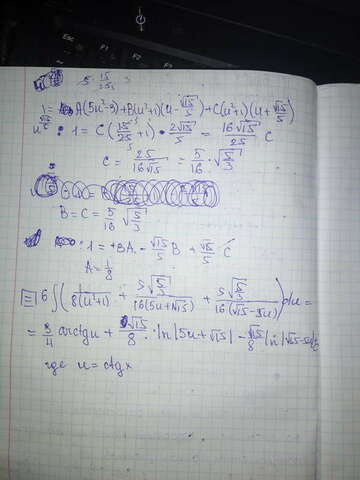 Esc
F1
F2
F3
5 15/25
1 = A(5u²-3)+B(u²+1)(u-√15/5)+C(u²+1)(u+√15/5)
1 = C(15/25+1) · 2√15/5 = 16√15/25 C
C = 25/16√15 = 5/16 · √5/3
B = C = 5/16 √5/3
A = 1/8
6∫(1/8(u²+1) + 5√5/3/16(5u+√15) + 5√5/3/16(√15-5u))du =
= 3/4 arctgu + √15/8 · ln|5u+√15| - √15/8 ln|√15-5u|
где u = ctgx